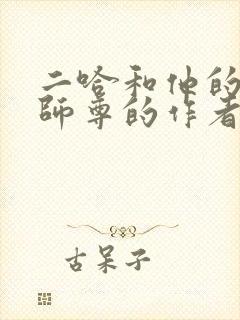 二哈和他的
师尊的作者
古呆子